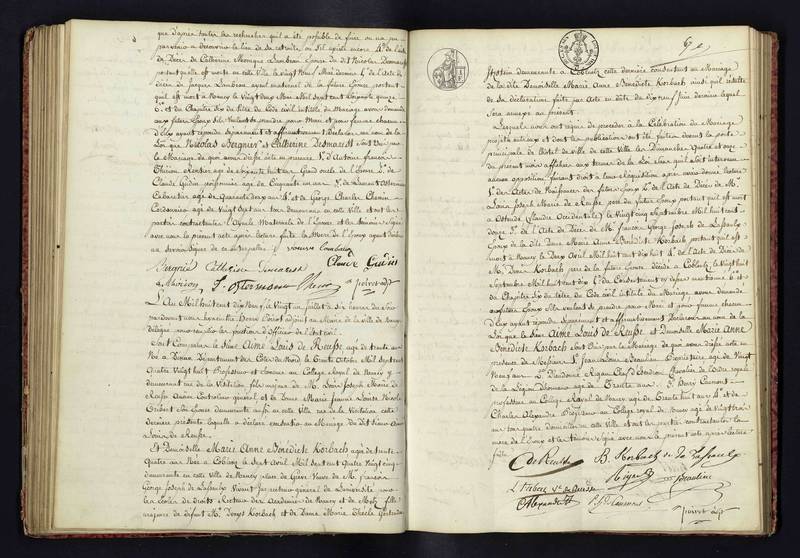 que d'après toutes les recherches qu'il a été possible de faire on n'a pu
parvenir à découvrir le lieu de sa retraite ou s'il existe encore 4.° de l'acte
de Décès de Catherine Monique Lambron Epouse du dit Nicolas Desmaust
portant qu'elle est morte en cette Ville le vingt neuf Mai dernier 5.° de l'Acte de
Décès de Jacques Lambron ayeul maternel de la future Epouse portant
qu'il est mort à Nancy le vingt deux Mai Mil sept cent soixante quinze
6.° et du Chapitre six du titre du Code civil intitulé du Mariage avons demandé
aux futurs Epoux s'ils veulent se prendre pour Mari et pour femme chacun
d'eux ayant répondu séparement et affirmativement Déclarons au nom de la
Loi que Nicolas Bergnier et Catherine Desmaust sont unis par
le Mariage de quoi avons dressé acte en présence 1.° d'Antoine françois
Rentier agé de soixante huit ans Grand oncle de l'Epouse 2.° de
Claude Gudin agé de Cinquante un ans 3.° de Laurent
Cabaretier agé de Quarante deux ans 4.° et de George Charles
Cordonnier agé de vingt sept ans tous demeurans en cette Ville et ont les
parties contractantes l'Ayeule Maternelle de l'Epouse et les témoins signé
avec nous le présent acte après lecture faite la Mere de l'Epoux ayant déclaré
veuve Lambron
Bergnié Catherine Desmaust Claude Gudin
Poirot adjt
L'An Mil huit cent dix Neuf, le vingt un juillet à six heures du soir
pardevant nous Hyacinthe Henry Poirot adjoint au Maire de la Ville de Nancy
délégué pour remplir les fonctions d'Officier de l'Etat civil.
Sont Comparus le Sieur Aimé Louis de Reusse agé de trente ans
Né à Dinan Département des Côtes du Nord le trente Octobre Mil sept cent
Quatre vingt huit Professeur et Censeur au Collège Royal de Nancy y
demeurant rue de la Visitation, fils majeur de Mr. Louis Joseph Marie de
Reusse Ancien Contrôleur général et de Dame Marie Jeanne Louise Nicole
son Epouse demeurante aussi en cette Ville rue de la Visitation cette
dernière présente laquelle a déclaré consentir au Mariage de Dit Sieur Aimé
Louis de Reusse.
Et Demoiselle Marie Anne Bénédicte Korbach agée de trente
Quatre ans Née à Coblentz le sept Avril Mil sept cent Quatre Vingt cinq
demeurante en cette Ville de Nancy place de Grève Veuve de Mr. françois
George Joseph de Lassaulx Vivant Inspecteur général de l'université
des Ecoles de Droits et Recteur des Académies de Nancy et de Metz fille
majeure de défunt Mr. Denys Korbach et de Dame Marie Thècle Gertrude
demeurante à Coblentz cette dernière consentant au Mariage
de la dite Demoiselle Marie Anne Bénédicte Korbach ainsi qu'il résulte
de sa déclaration faite par Acte en date du dix neuf juin dernier lequel
sera annexé au présent.
Lesquels nous ont requis de procéder à la Célébration du Mariage
projeté entr'eux et dont les publications ont été faites devant la porte
principale de l'hôtel de ville de cette Ville les Dimanches Quatre et onze
du présent mois affichées aux termes de la Loi sans qu'il soit intervenu
aucune opposition, faisant droit à leur réquisition après avoir donné lecture
1.° des Actes de Naissances des futurs Epoux 2.° de l'Acte de Décès de Mr.
Louis Joseph Marie de Reusse père du futur Epoux portant qu'il est mort
à Ostende (flandre Occidentale) le vingt cinq Septembre Mil huit cent
douze 3.° de l'Acte de Décès de Mr. François George Joseph de Lassaulx
Epoux de la dite Dame Marie Anne Bénédicte Korbach portant qu'il est
mort à Nancy le Deux Avril Mil huit cent dix huit 4.° de l'Acte de Décès de
Mr. Denis Korbach père de la future Epouse décédé à Coblentz le vingt huit
Septembre Mil huit cent dix 5.° du Consentement cy-dessus mentionné 6.° et
du Chapitre six du titre du Code civil intitulé du Mariage avons demandé
aux futurs Epoux s'ils veulent se prendre pour Mari et pour femme chacun
d'eux ayant répondu séparement et affirmativement Déclarons au nom de la
Loi que le Sieur Aimé Louis de Reusse et Demoiselle Marie Anne
Bénédicte Korbach sont Unis par le Mariage de quoi avons dressé acte en
présence de Messieurs 1.° Jean Louis Beaulieu Propriétaire agé de Vingt
Neuf ans 2.° Dieudonné Chef d'Escadron Chevalier de l'ordre royal
de la Légion d'honneur agé de Trente ans 3.° Henry Caumont
professeur au Collège Royal de Nancy agé de trente huit ans 4.° et de
Charles Alexandre Professeur au Collège royal de Nancy agé de vingt trois
ans tous quatre domiciliés en cette ville et ont les parties contractantes la
mere de l'Epoux et les témoins signé avec nous le présent acte après lecture
faite
de Reusse B. Korbach de Lassaulx
Beaulieu
Alexandre Caumont
Poirot adjt